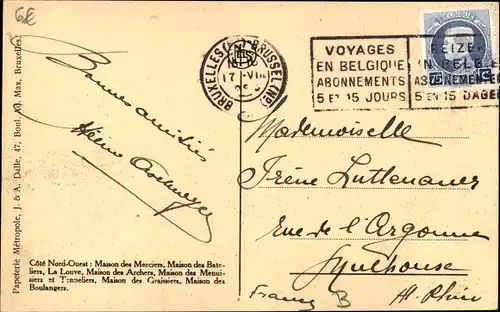 6E
BRUXELLES (N) BRUSSEL (N)
17
VOYAGES
EN BELGIQUE
ABONNEMENTS
5 ET 15 JOURS
REIZEN
IN BELGIE
ABONNEMENTEN
5 EN 15 DAGEN
75 C
Bonnes amitiés
Mademoiselle
Irène Luttenauer
Rue de l'Argonne
Mulhouse
France
Ht. Rhin
B
Papeterie Métropole, J. & A. Dalle, 47, Boul. Ad. Max, Bruxelles
Côté Nord-Ouest : Maison des Merciers, Maison des Bate-
liers, La Louve, Maison des Archers, Maison des Menui-
siers et Tonneliers, Maison des Graissiers, Maison des
Boulangers.